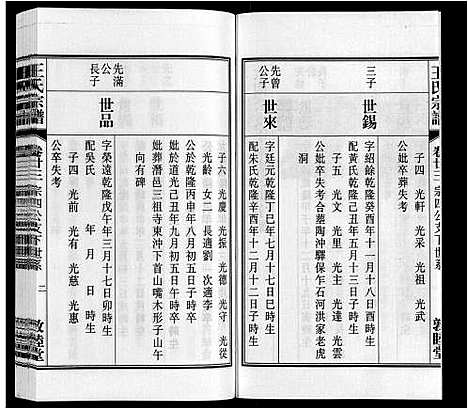 王氏宗譜
卷廿三 宗四公支下世系
敦睦堂
三子
世錫
子四 光軒 光采 光祖 光武
字紹餘乾隆癸酉年十一月十八日酉時生
配黃氏乾隆己丑年五月十三日子時生
子五 光文 光里 光主 光達 光雲
公妣卒葬失考合葬陶沖驛保乍石河洪家老虎
洞
先曾公子
世來
字廷元乾隆丁巳年七月十七日巳時生
配朱氏乾隆辛酉年十二月十二日子時生
子六 光慶 光振 光德 光守 光從
光齡 女二 長適劉 次適李
公歿乾隆丙申年八月初五日子時卒
妣於道光己卯年九月初五日午時卒
妣葬潛邑三祖寺東沖下首山嘴木形子山午
向有碑
先滿公長子
世品
字榮遠乾隆戊午年三月十七日卯時生
配吳氏 年 月 日 時生
子四 光前 光有 光慈 光惠
公卒失考
王氏宗譜
卷廿三 宗四公支下世系
二
敦睦堂